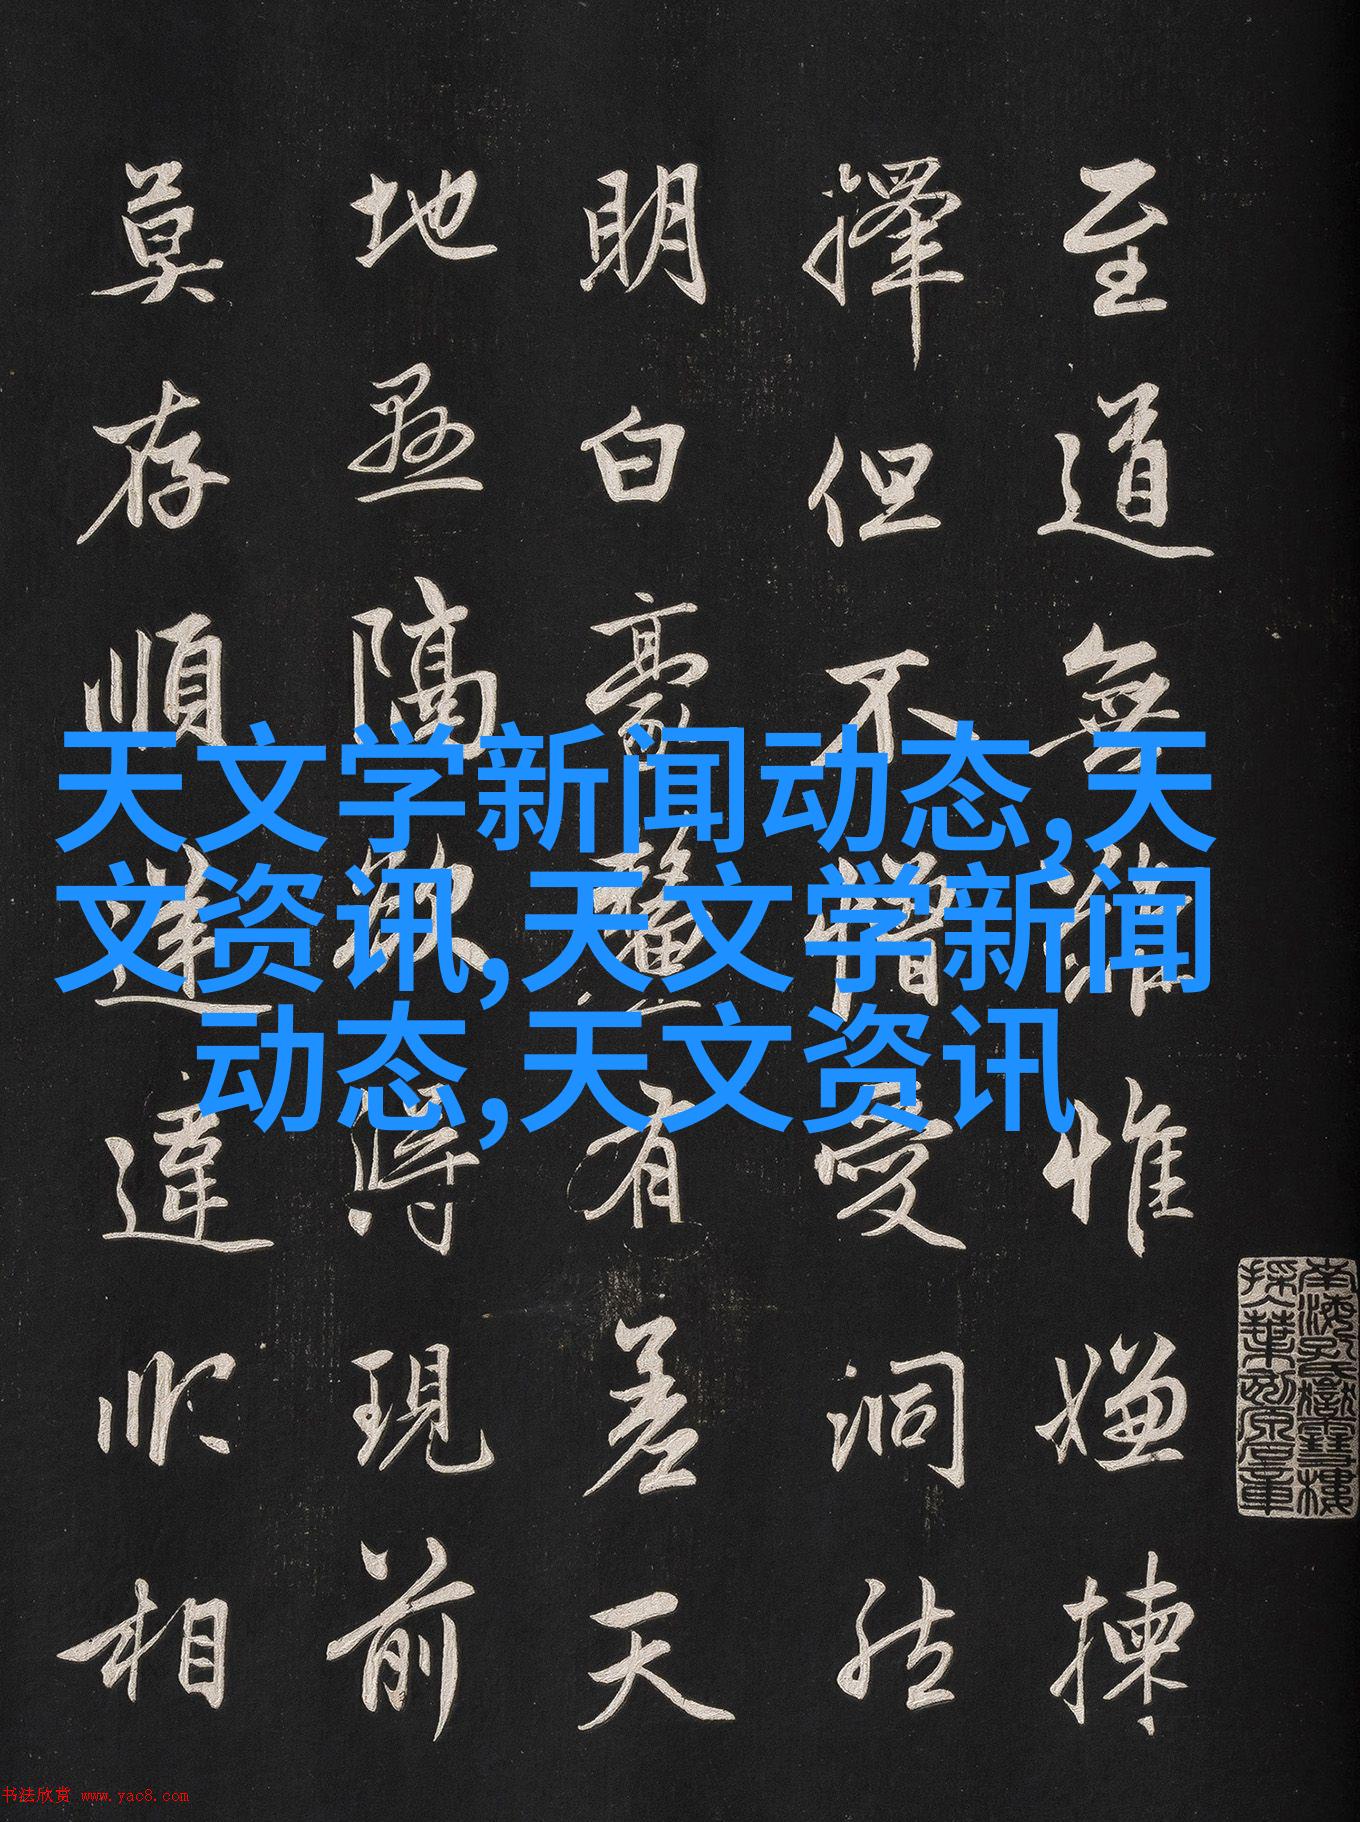 至道無難惟嫌揀
擇但不憎愛洞然
明白毫釐有差天
地懸隔欲得現前
莫存順逆違順相
天文学新闻动态,天
文资讯,天文学新闻
动态,天文资讯
书法欣赏 www.yac8.com